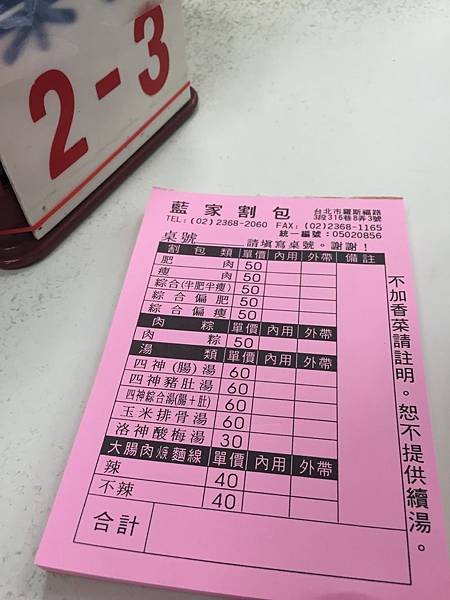 2-3
藍家割包
台北市羅斯福路
3段316巷8弄3號
TEL:(02)2368-2060 FAX:(02)2368-1165
統一編號:05020856
桌號 請填寫桌號。謝謝!
割包類 單價 內用 外帶 備註
肥肉 50
瘦肉 50
綜合(半肥半瘦) 50
綜合偏肥 50
綜合偏瘦 50
肉粽 單價 內用 外帶
肉粽 50
湯類 單價 內用 外帶
四神(腸)湯 60
四神豬肚湯 60
四神綜合湯(腸+肚) 60
玉米排骨湯 60
洛神酸梅湯 30
大腸肉焿麵線 單價 內用 外帶
辣 40
不辣 40
合計
不加香菜請註明。恕不提供續湯。